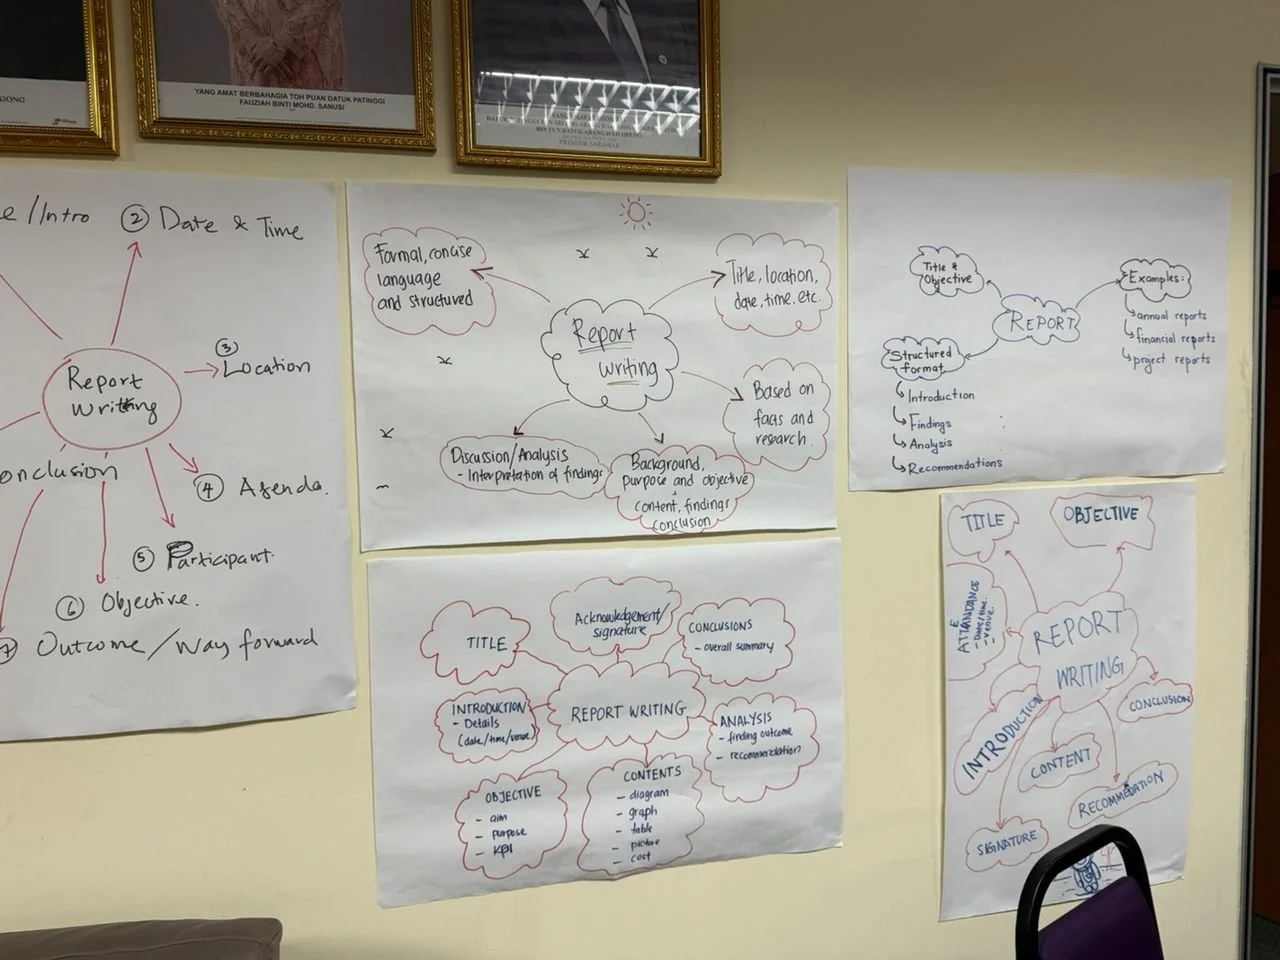 YANG AMAT BERBAHAGIA TOH PUAN DATUK PATINGGI
FAUZIAH BINTI MOHD. SANUSI
PREMIER SARAWAK
e/Intro
② Date & Time
Report
Writing
③
Location
④ Agenda.
⑤ Participant
⑥ Objective.
⑦ Outcome/Way forward
onclusion
Formal, concise
language
and structured
Title, location,
date, time, etc.
Report
writing
Based on
facts and
research.
Discussion/Analysis
- Interpretation of findings
Background,
purpose and objective
content, findings
conclusion
Title &
Objective
REPORT
Examples:
annual reports
financial reports
project reports
Structured
format
Introduction
Findings
Analysis
Recommendations
TITLE
Acknowledgement/
signature
CONCLUSIONS
- overall summary
INTRODUCTION
- Details
(date/time/venue)
REPORT WRITING
ANALYSIS
- finding outcome
- recommendation
OBJECTIVE
- aim
- purpose
- KPI
CONTENTS
- diagram
- graph
- table
- picture
- cost
TITLE
OBJECTIVE
ATTANDANCE
- Date/time.
- venue.
REPORT
WRITING
INTRODUCTION
CONCLUSION
CONTENT
RECOMMEDATION
SIGNATURE